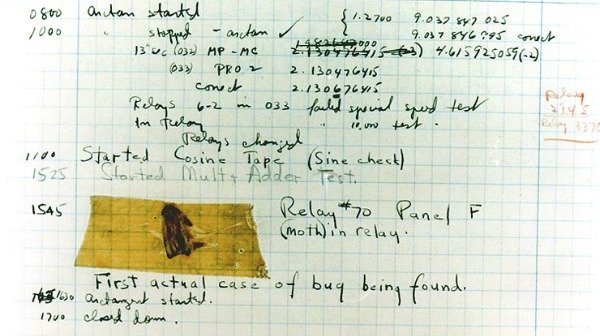 0800 Antan started
1000 " stopped - antan ✓ { 1.2700 9.037 847 025
9.037 846 995 conect
13"uc (032) MP - MC 2.130476415 (-3) 4.615925059(-2)
(033) PRO 2 2.130476415
conect 2.130676415
Relays 6-2 in 033 failed special speed test
in relay " 10.000 test.
Relay
2145
Relay 3370
Relays changed
1100 Started Cosine Tape (Sine check)
1525 Started Mult + Adder Test.
1545 Relay #70 Panel F
(Moth) in relay.
First actual case of bug being found.
1630 antangent started.
1700 closed down.